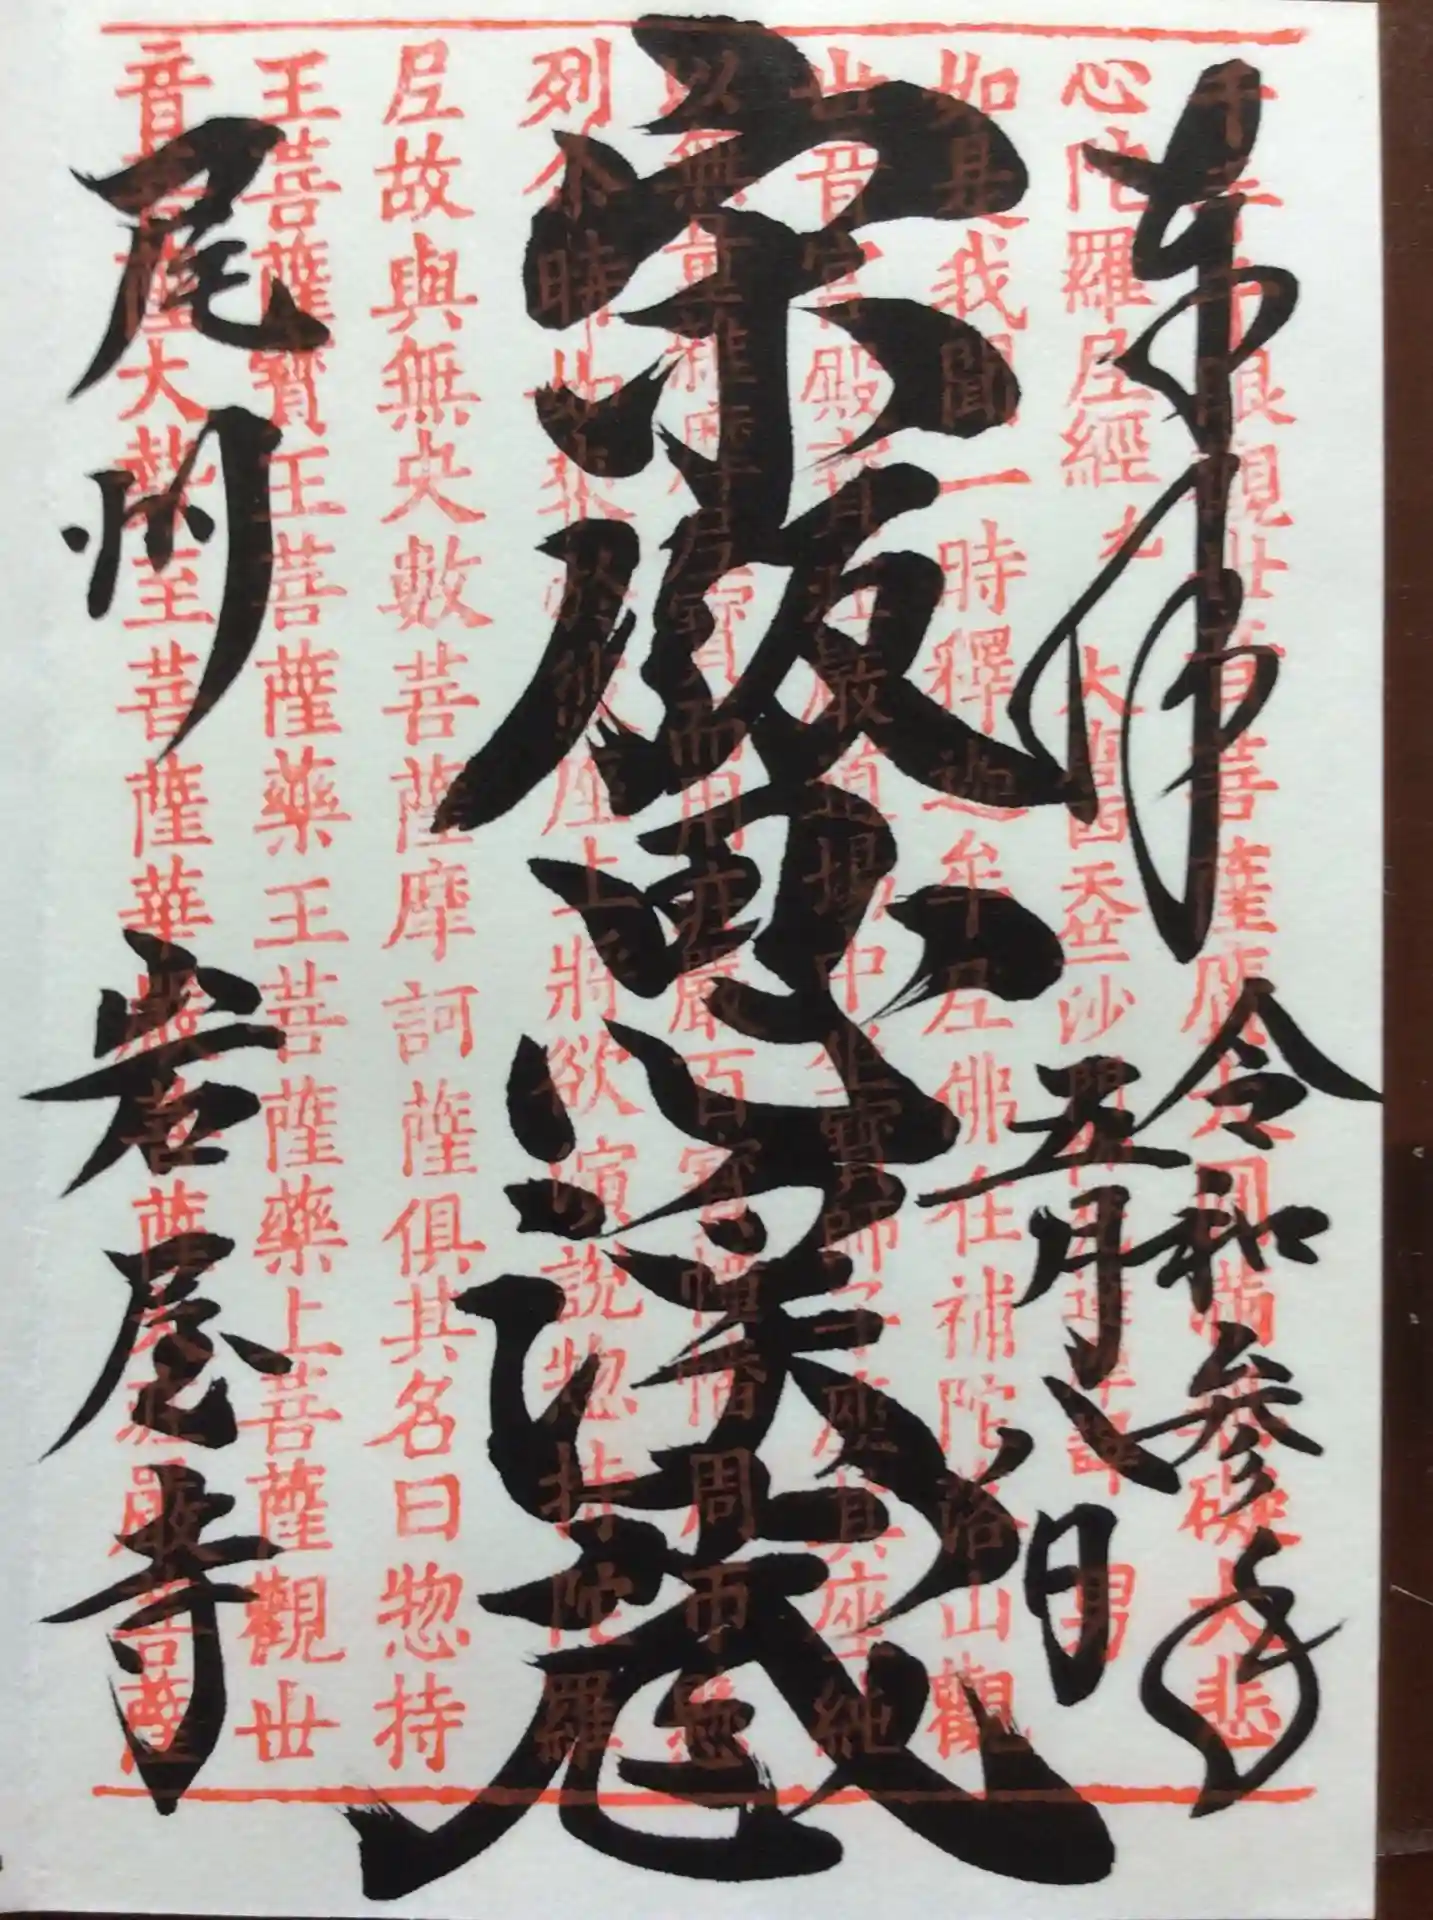 奉拝
令和参年
五月八日
宋版思渓蔵
尾州 岩屋寺
千手千眼觀世音菩薩廣大圓滿無礙大悲
心陀羅尼經 九 大唐西天竺沙門伽梵達摩譯 男
如是我聞一時釋迦牟尼佛在補陀落山觀
世音宮殿寶莊嚴道場中坐寶師子座其座純
以無量雜摩尼寶而用莊嚴百寶幢幡周帀懸
列尒時如來於彼座上將欲演說惣持陀羅
尼故與無央數菩薩摩訶薩俱其名曰惣持
王菩薩寶王菩薩藥王菩薩藥上菩薩觀世
音菩薩大勢至菩薩華嚴菩薩大莊嚴菩薩